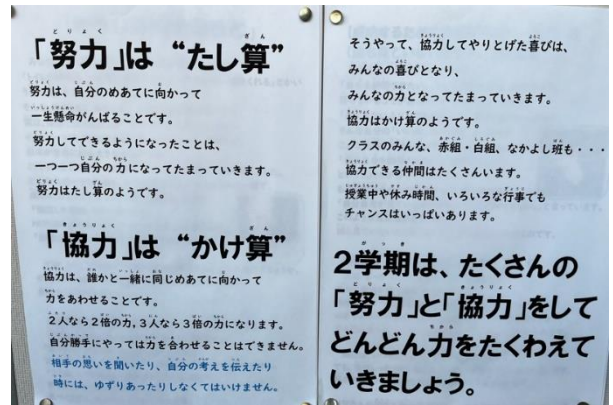 「努力」は “たし算”
努力は、自分のめあてに向かって
一生懸命がんばることです。
努力してできるようになったことは、
一つ一つ自分の力になってたまっていきます。
努力はたし算のようです。
「協力」は “かけ算”
協力は、誰かと一緒に同じめあてに向かって
力をあわせることです。
2人なら2倍の力,3人なら3倍の力になります。
自分勝手にやっては力を合わせることはできません。
相手の思いを聞いたり、自分の考えを伝えたり
時には、ゆずりあったりしなくてはいけません。
そうやって、協力してやりとげた喜びは、
みんなの喜びとなり、
みんなの力となってたまっていきます。
協力はかけ算のようです。
クラスのみんな、赤組・白組、なかよし班も・・・
協力できる仲間はたくさんいます。
授業中や休み時間、いろいろな行事でも
チャンスはいっぱいあります。
2学期は、たくさんの
「努力」と「協力」をして
どんどん力をたくわえて
いきましょう。